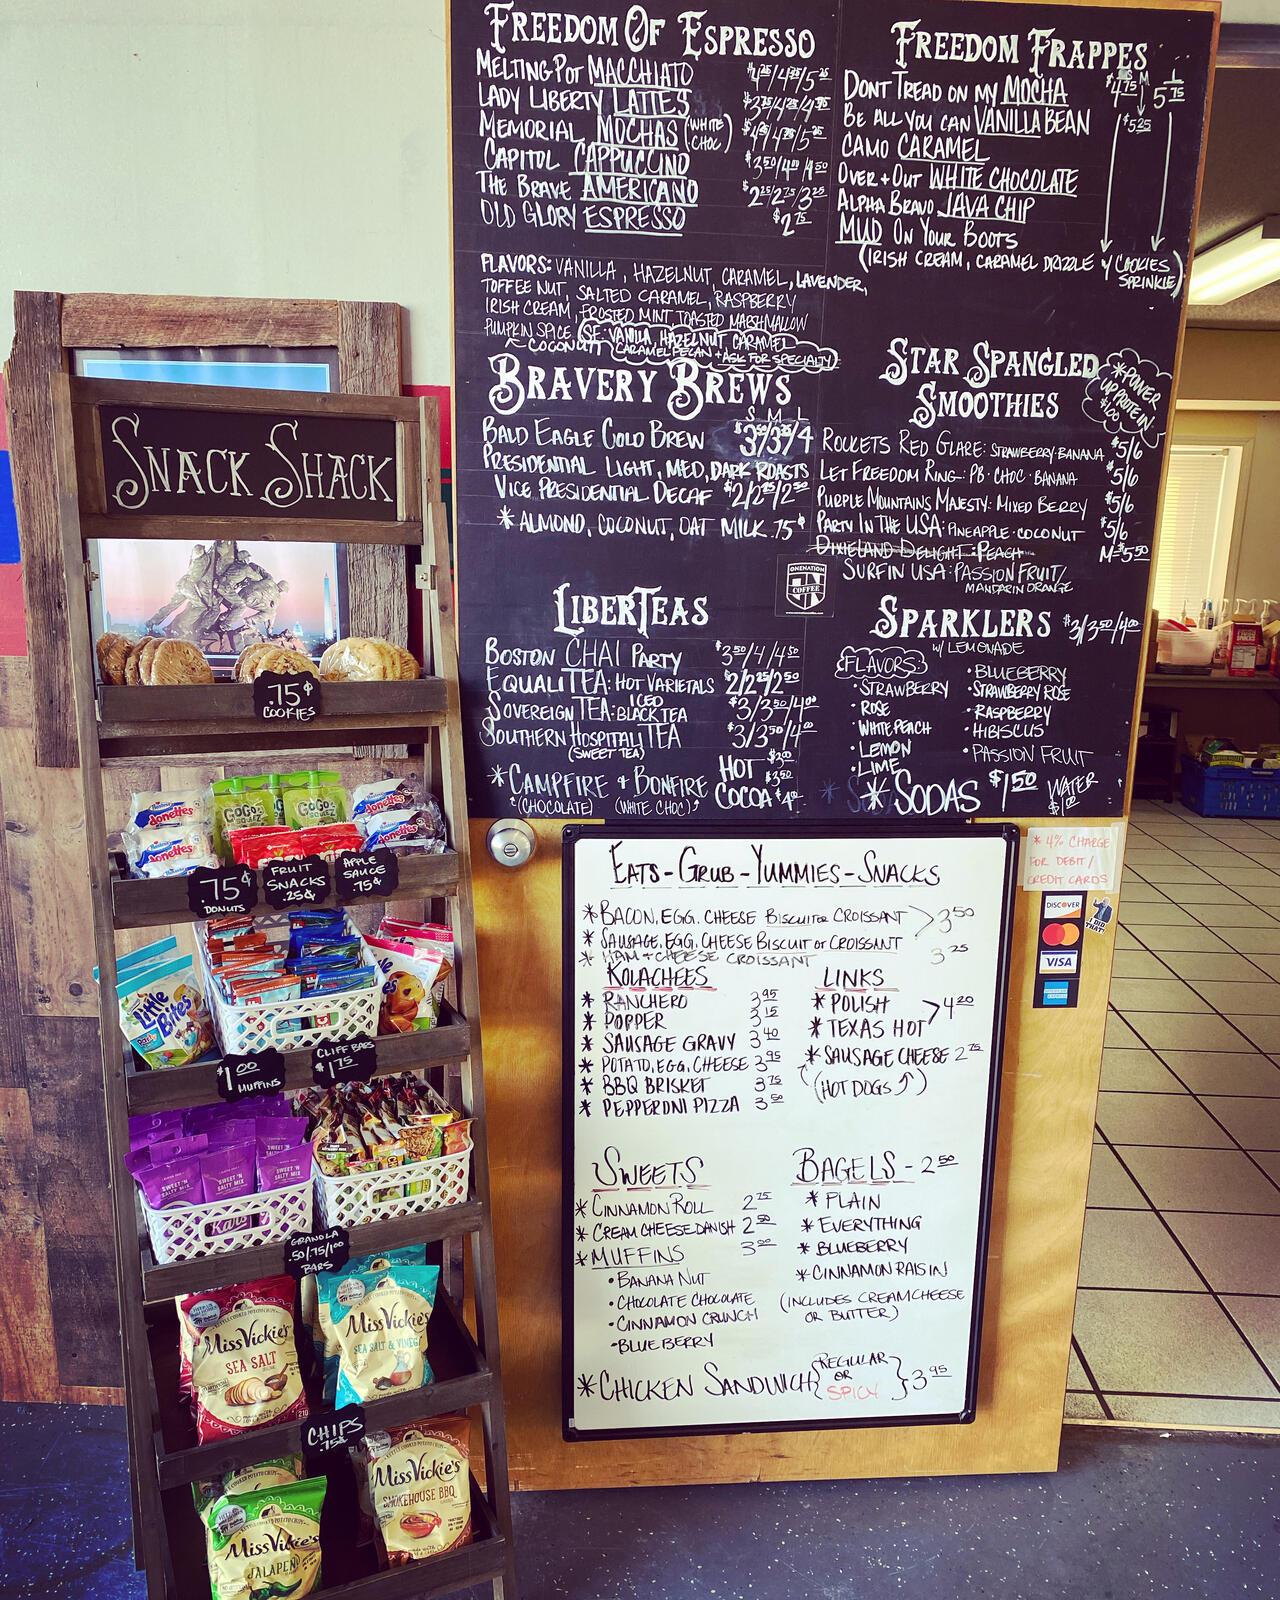 FREEDOM OF ESPRESSO
MELTING POT MACCHIATO $4.25/4.75/5.25
LADY LIBERTY LATTES $3.75/4.25/4.75
MEMORIAL MOCHAS (WHITE CHOC)
CAPITOL CAPPUCCINO $3.50/4.00/4.50
THE BRAVE AMERICANO $2.25/2.75/3.25
OLD GLORY ESPRESSO $2.75
FLAVORS: VANILLA, HAZELNUT, CARAMEL, LAVENDER,
TOFFEE NUT, SALTED CARAMEL, RASPBERRY
IRISH CREAM, FROSTED MINT, TOASTED MARSHMALLOW
PUMPKIN SPICE SF: VANILLA, HAZELNUT, CARAMEL
COCONUT CARAMEL PECAN + ASK FOR SPECIALTY
FREEDOM FRAPPES
S M L
DONT TREAD ON MY MOCHA $4.75 5.75
BE ALL YOU CAN VANILLA BEAN $5.25
CAMO CARAMEL
OVER + OUT WHITE CHOCOLATE
ALPHA BRAVO JAVA CHIP
MUD ON YOUR BOOTS
(IRISH CREAM, CARAMEL DRIZZLE w/ COOKIES SPRINKLE)
BRAVERY BREWS
S M L
BALD EAGLE COLD BREW
PRESIDENTIAL LIGHT, MED, DARK ROASTS
VICE PRESIDENTIAL DECAF $2/2.25/2.50
* ALMOND, COCONUT, OAT MILK .75¢
STAR SPANGLED
SMOOTHIES
*POWER UP PROTEIN
$1.00
ROCKETS RED GLARE: STRAWBERRY·BANANA $5/6
LET FREEDOM RING: PB·CHOC·BANANA $5/6
PURPLE MOUNTAINS MAJESTY: MIXED BERRY $5/6
PARTY IN THE USA: PINEAPPLE·COCONUT $5/6
DIXIELAND DELIGHT: PEACH M-$5.50
SURFIN USA: PASSION FRUIT/
MANDARIN ORANGE
ONENATION
COFFEE
LIBERTEAS
BOSTON CHAI PARTY $3.50/4/4.50
EQUALITEA: HOT VARIETALS $2/2.25/2.50
SOVEREIGN TEA: ICED BLACK TEA $3/3.50/4.00
SOUTHERN HOSPITALITEA $3/3.50/4.00
(SWEET TEA)
* CAMPFIRE & BONFIRE HOT COCOA $3.00 $3.50 $4.00
(CHOCOLATE) (WHITE CHOC)
SPARKLERS $3/3.50/4.00
W/ LEMONADE
FLAVORS:
·STRAWBERRY
·ROSE
·WHITE PEACH
·LEMON
·LIME
·BLUEBERRY
·STRAWBERRY ROSE
·RASPBERRY
·HIBISCUS
·PASSION FRUIT
*SODAS $1.50 WATER $1.00
SNACK SHACK
.75¢
COOKIES
Hostess
Donettes
GOGO
squeeZ
Hostess
Donettes
.75¢
DONUTS
FRUIT
SNACKS
.25¢
APPLE
SAUCE
.75¢
Little
Bites
$1.00
MUFFINS
CLIFF BARS
$1.75
SWEET 'N
SALTY MIX
GRANOLA
.50/.75/1.00
BARS
Miss Vickie's
SEA SALT
Miss Vickie's
SEA SALT & VINEGAR
CHIPS
.75¢
Miss Vickie's
JALAPEÑO
Miss Vickie's
SMOKEHOUSE BBQ
EATS-GRUB-YUMMIES-SNACKS
*BACON, EGG, CHEESE BISCUIT or CROISSANT 3.50
*SAUSAGE, EGG, CHEESE BISCUIT or CROISSANT
*HAM + CHEESE CROISSANT 3.25
KOLACHEES
* RANCHERO 3.95
* POPPER 3.15
* SAUSAGE GRAVY 3.40
* POTATO, EGG, CHEESE 3.95
* BBQ BRISKET 3.75
* PEPPERONI PIZZA 3.50
LINKS
* POLISH 4.20
* TEXAS HOT
* SAUSAGE CHEESE 2.75
(HOT DOGS)
SWEETS
* CINNAMON ROLL 2.75
* CREAM CHEESE DANISH 2.50
* MUFFINS 3.00
·BANANA NUT
·CHOCOLATE CHOCOLATE
·CINNAMON CRUNCH
·BLUEBERRY
BAGELS - 2.50
* PLAIN
* EVERYTHING
* BLUEBERRY
* CINNAMON RAISIN
(INCLUDES CREAM CHEESE
OR BUTTER)
*CHICKEN SANDWICH {REGULAR OR SPICY} 3.95
* 4% CHARGE
FOR DEBIT/
CREDIT CARDS
DISCOVER
VISA
I DID
THAT!